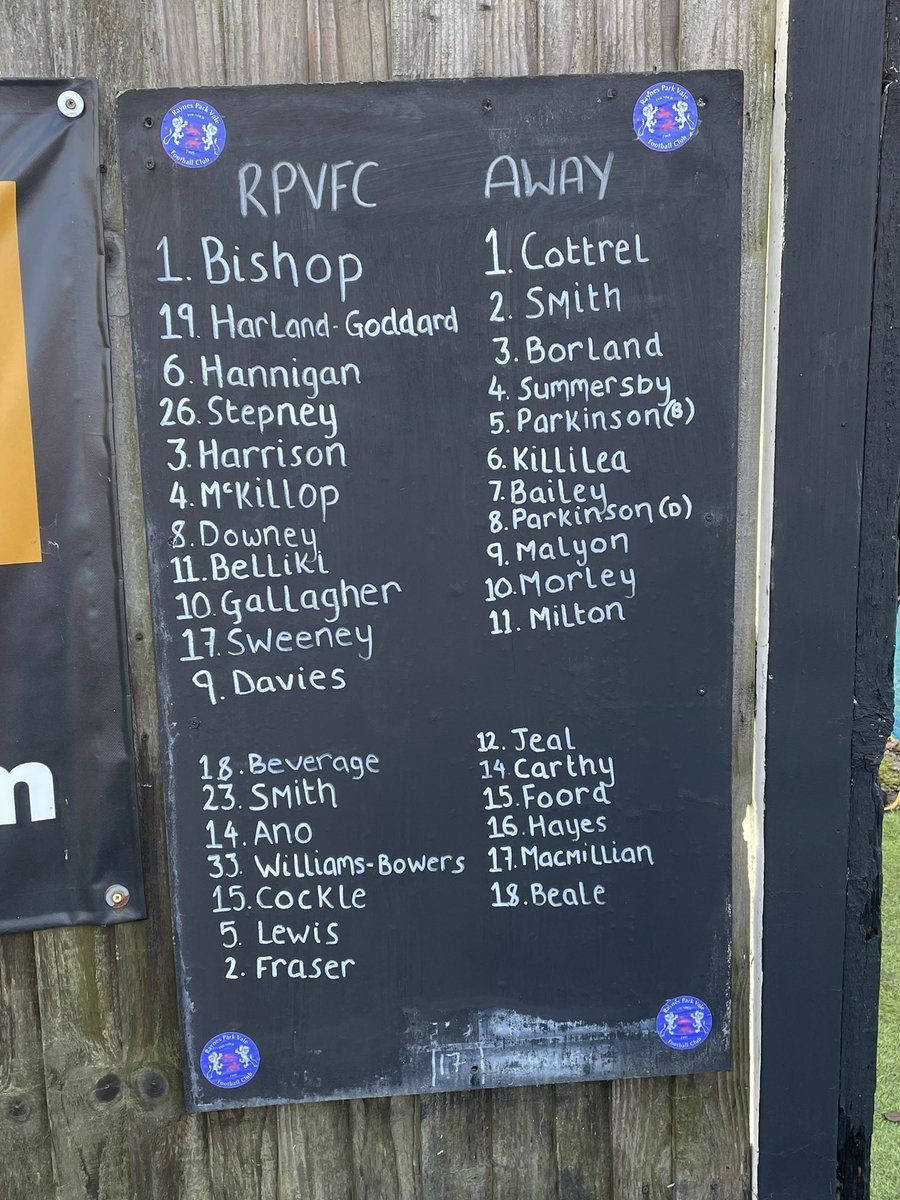 Raynes Park Vale
Football Club
Raynes Park Vale
Football Club
RPVFC
1. Bishop
19. Harland-Goddard
6. Hannigan
26. Stepney
3. Harrison
4. McKillop
8. Downey
11. Belliki
10. Gallagher
17. Sweeney
9. Davies
18. Beverage
23. Smith
14. Ano
33. Williams-Bowers
15. Cockle
5. Lewis
2. Fraser
AWAY
1. Cottrel
2. Smith
3. Borland
4. Summersby
5. Parkinson (B)
6. Killilea
7. Bailey
8. Parkinson (D)
9. Malyon
10. Morley
11. Milton
12. Jeal
14. Carthy
15. Foord
16. Hayes
17. Macmillian
18. Beale
m
Raynes Park Vale
Football Club
Raynes Park Vale
Football Club